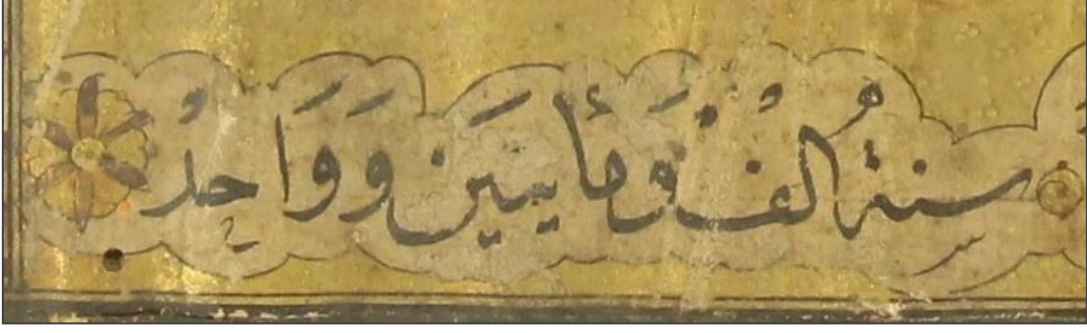 سنةُ الفٍ وَمأيتَين وَوَاحِدْ